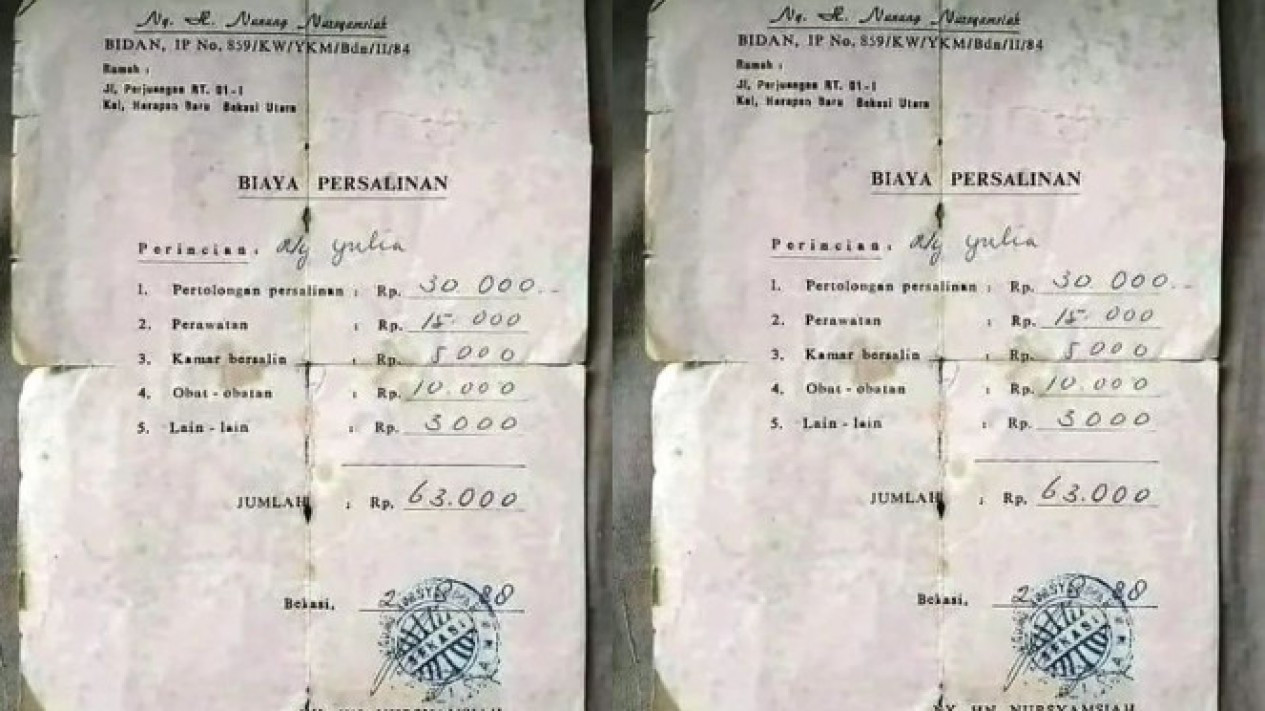 Ny. H. Nanang Nursyamsiah
BIDAN, IP No, 859/KW/YKM/Bdn/II/84
Rumah :
Jl, Perjuangan RT. 01-I
Kel, Harapan Baru Bekasi Utara
BIAYA PERSALINAN
Perincian : a/y Yulia
1. Pertolongan persalinan : Rp. 30 000.-
2. Perawatan : Rp. 15.000
3. Kamar bersalin : Rp. 5000
4. Obat - obatan : Rp. 10.000
5. Lain - lain : Rp. 3000
JUMLAH : Rp. 63.000
Bekasi, 2 8 88
BEKASI
Ny. H. Nanang Nursyamsiah
BIDAN, IP No, 859/KW/YKM/Bdn/II/84
Rumah :
Jl, Perjuangan RT. 01-I
Kel, Harapan Baru Bekasi Utara
BIAYA PERSALINAN
Perincian : a/y Yulia
1. Pertolongan persalinan : Rp. 30 000.-
2. Perawatan : Rp. 15.000
3. Kamar bersalin : Rp. 5000
4. Obat - obatan : Rp. 10.000
5. Lain - lain : Rp. 3000
JUMLAH : Rp. 63.000
Bekasi, 2 8 88
BEKASI
NY. HN. NURSYAMSIAH